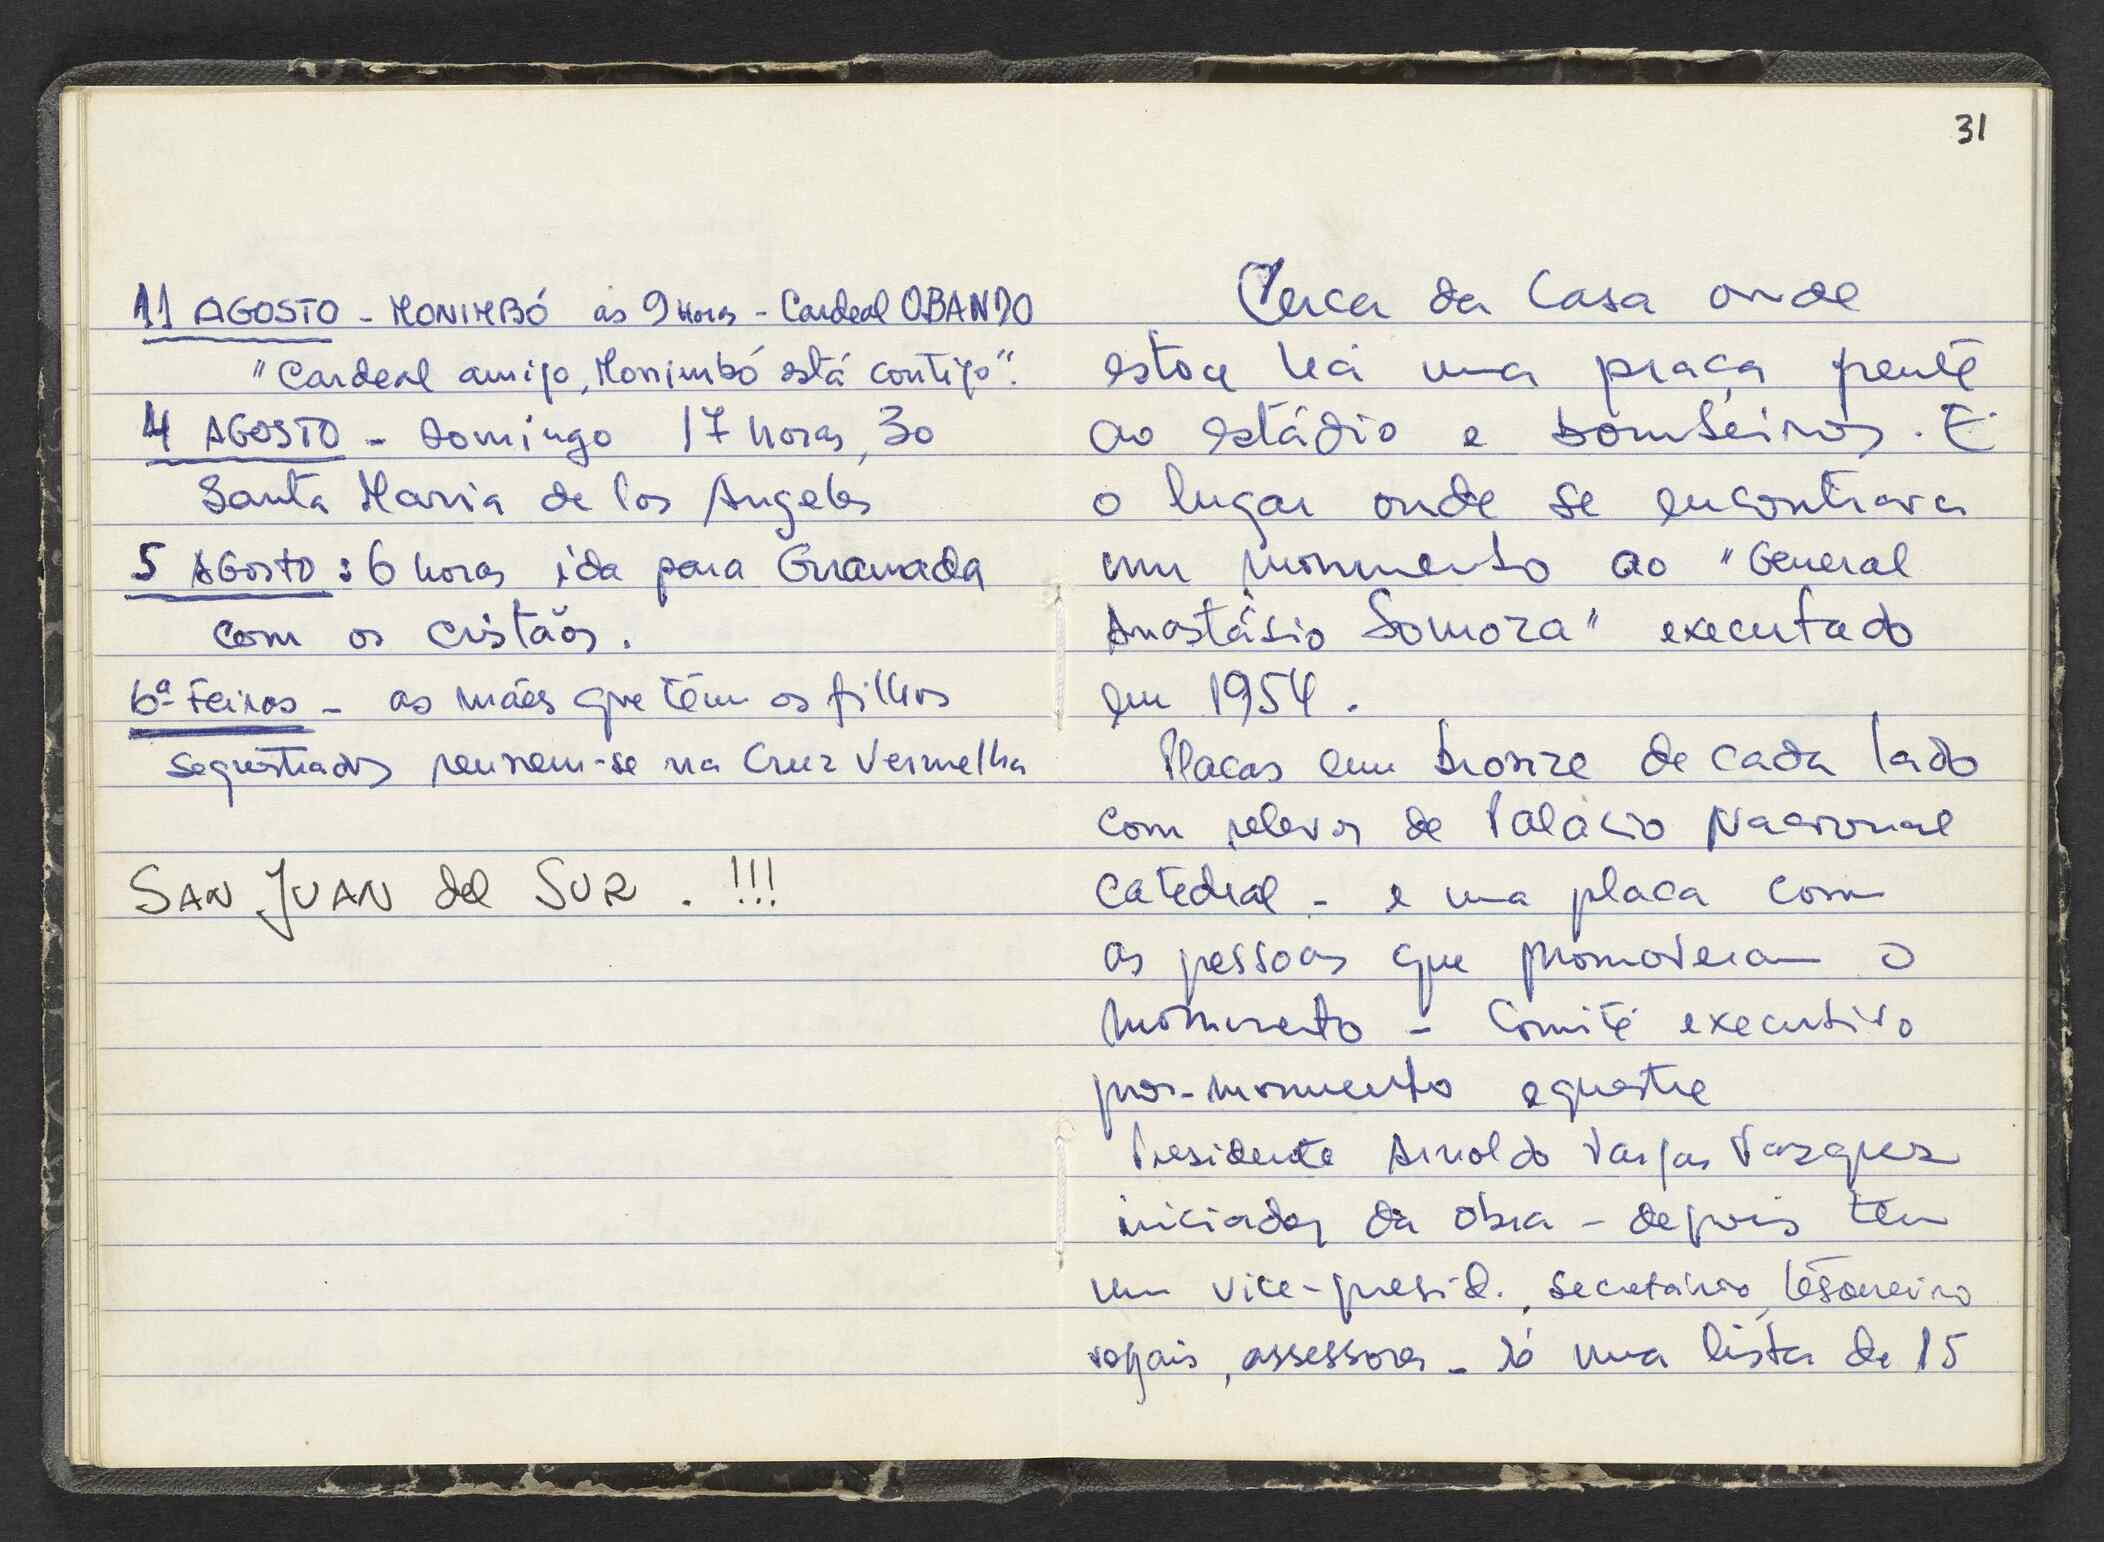 11 AGOSTO - MONIMBÓ às 9 horas - Cardeal OBANDO
"Cardeal amigo, Monimbó está contigo".
4 AGOSTO - Domingo 17 horas, 30
Santa Maria de los Angeles
5 AGOSTO : 6 horas ida para Granada
com os cristãos.
6ª Feiras - as mães que têm os filhos
sequestrados reunem-se na Cruz Vermelha
SAN JUAN del SUR . !!!
31
Cerca da Casa onde
estou há uma praça frente
ao estádio e bombeiros. É
o lugar onde se encontrava
um monumento ao "General
Anastásio Somoza" executado
em 1954.
Placas em bronze de cada lado
com relevos de Palácio Nacional
Catedral - e uma placa com
as pessoas que promoveram o
monumento - Comité executivo
pro-monumento equestre
Presidente Arnoldo Vargas Vazquez
iniciador da obra - depois tem
um vice-presid., secretário, tesoureiro
vogais, assessores - só uma lista de 15